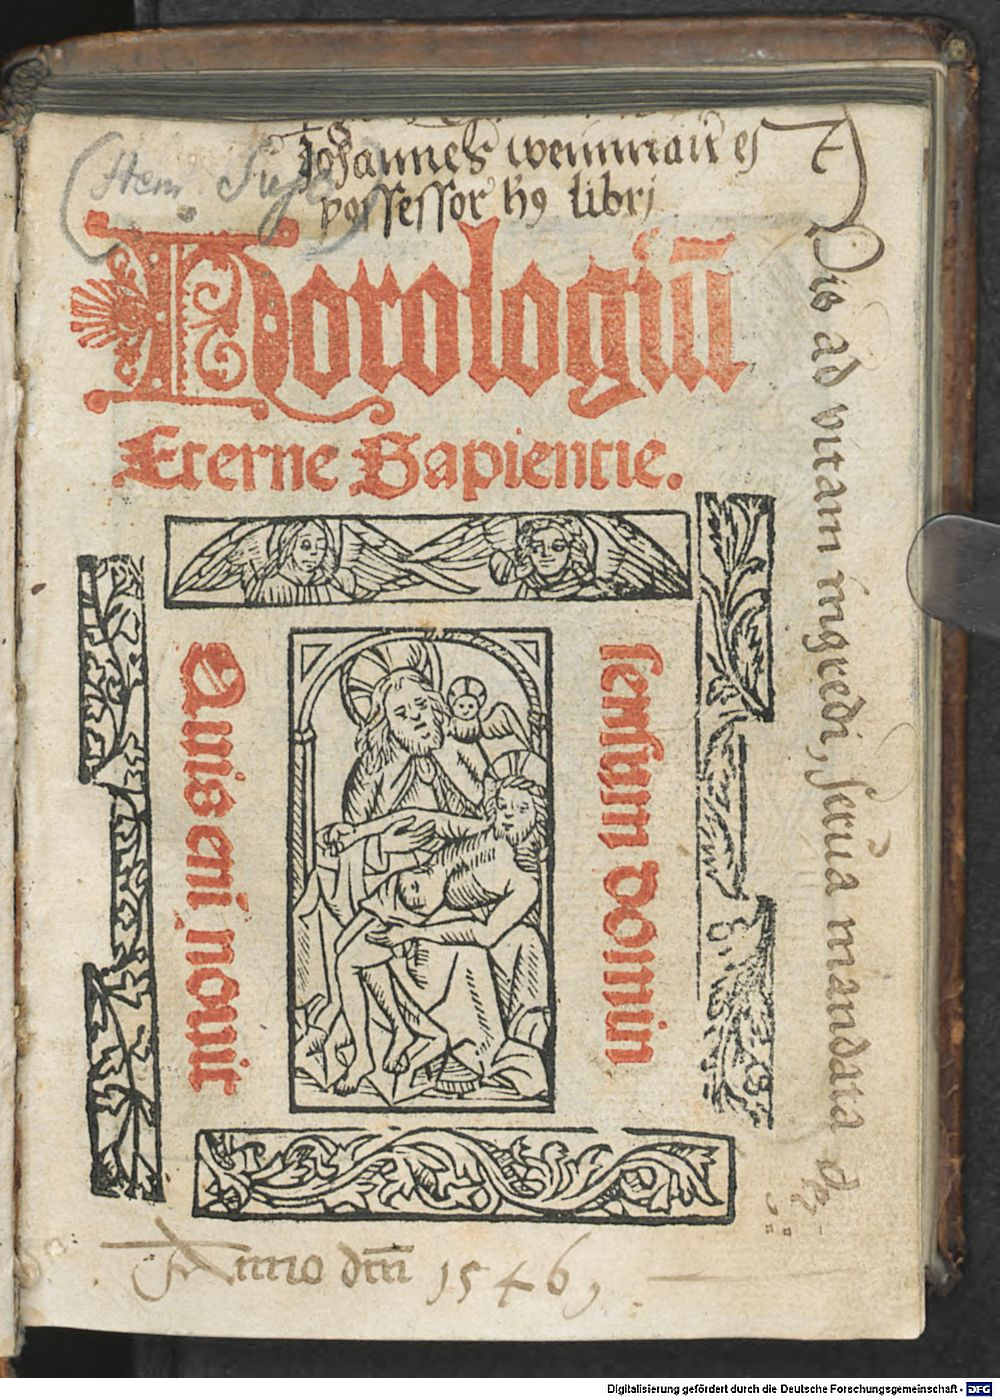 Johannes weinman eß
possessor h9 libri
(Hem Suso)
Horologiū
Eterne Sapientie.
Quis eni nouit
sensum domin
Vis ad vitam ingredi, serua mandata
Anno dm̄ 1546,
Digitalisierung gefördert durch die Deutsche Forschungsgemeinschaft - DFG